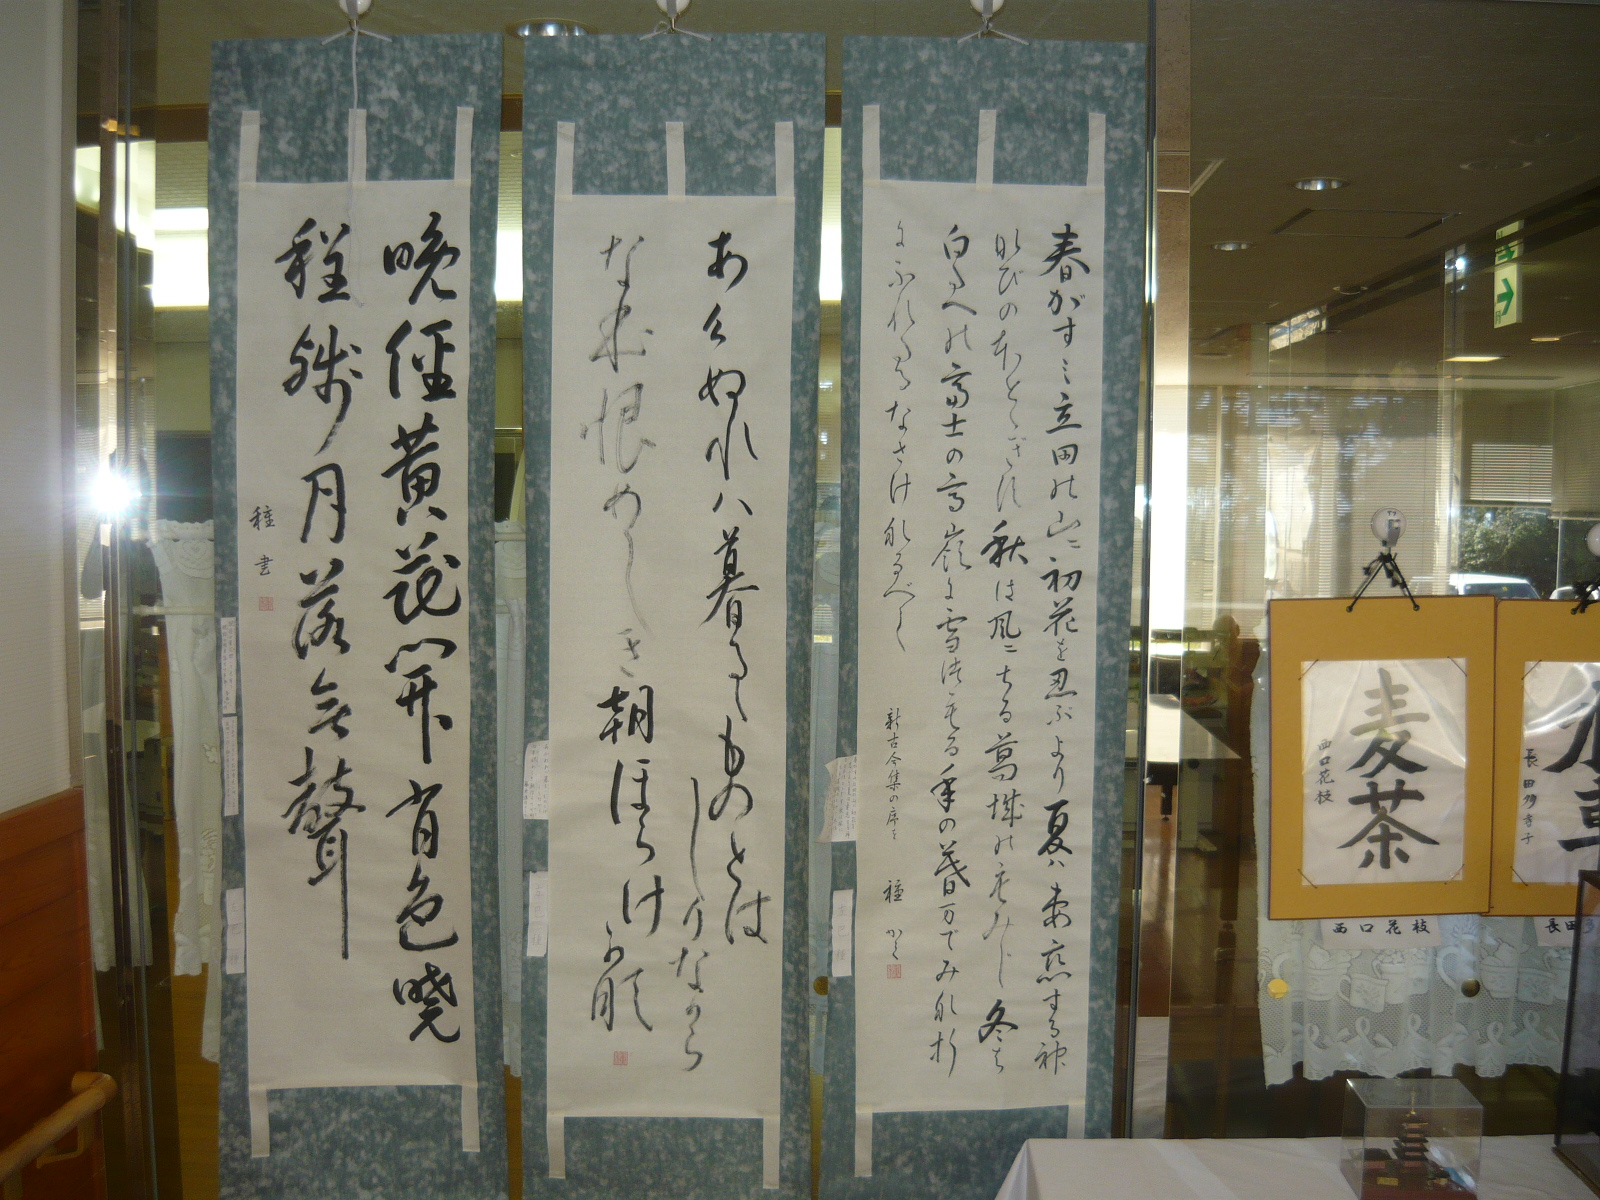 春がすミ立田の山ニ初花を忍ぶより夏ハ妻恋する神
なびの本とゝぎす秋は風ニちる葛城のもみじ冬は
白たへの富士の高嶺に雪つもる年の暮万でみな折
にふれたるなさけなるべし
新古今集の序を 種 かく
あけぬれハ暮るゝものとは
しりなから
な本恨めしき朝ほらけ
可那
晩径黄花開宵色暁
程残月落無聲
種 書
麦茶
西口花枝
西口花枝
長田
長田